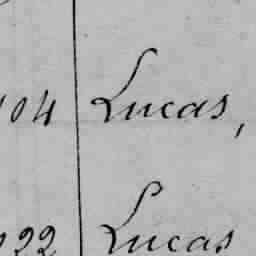 104 Lucas,
22 Lucas